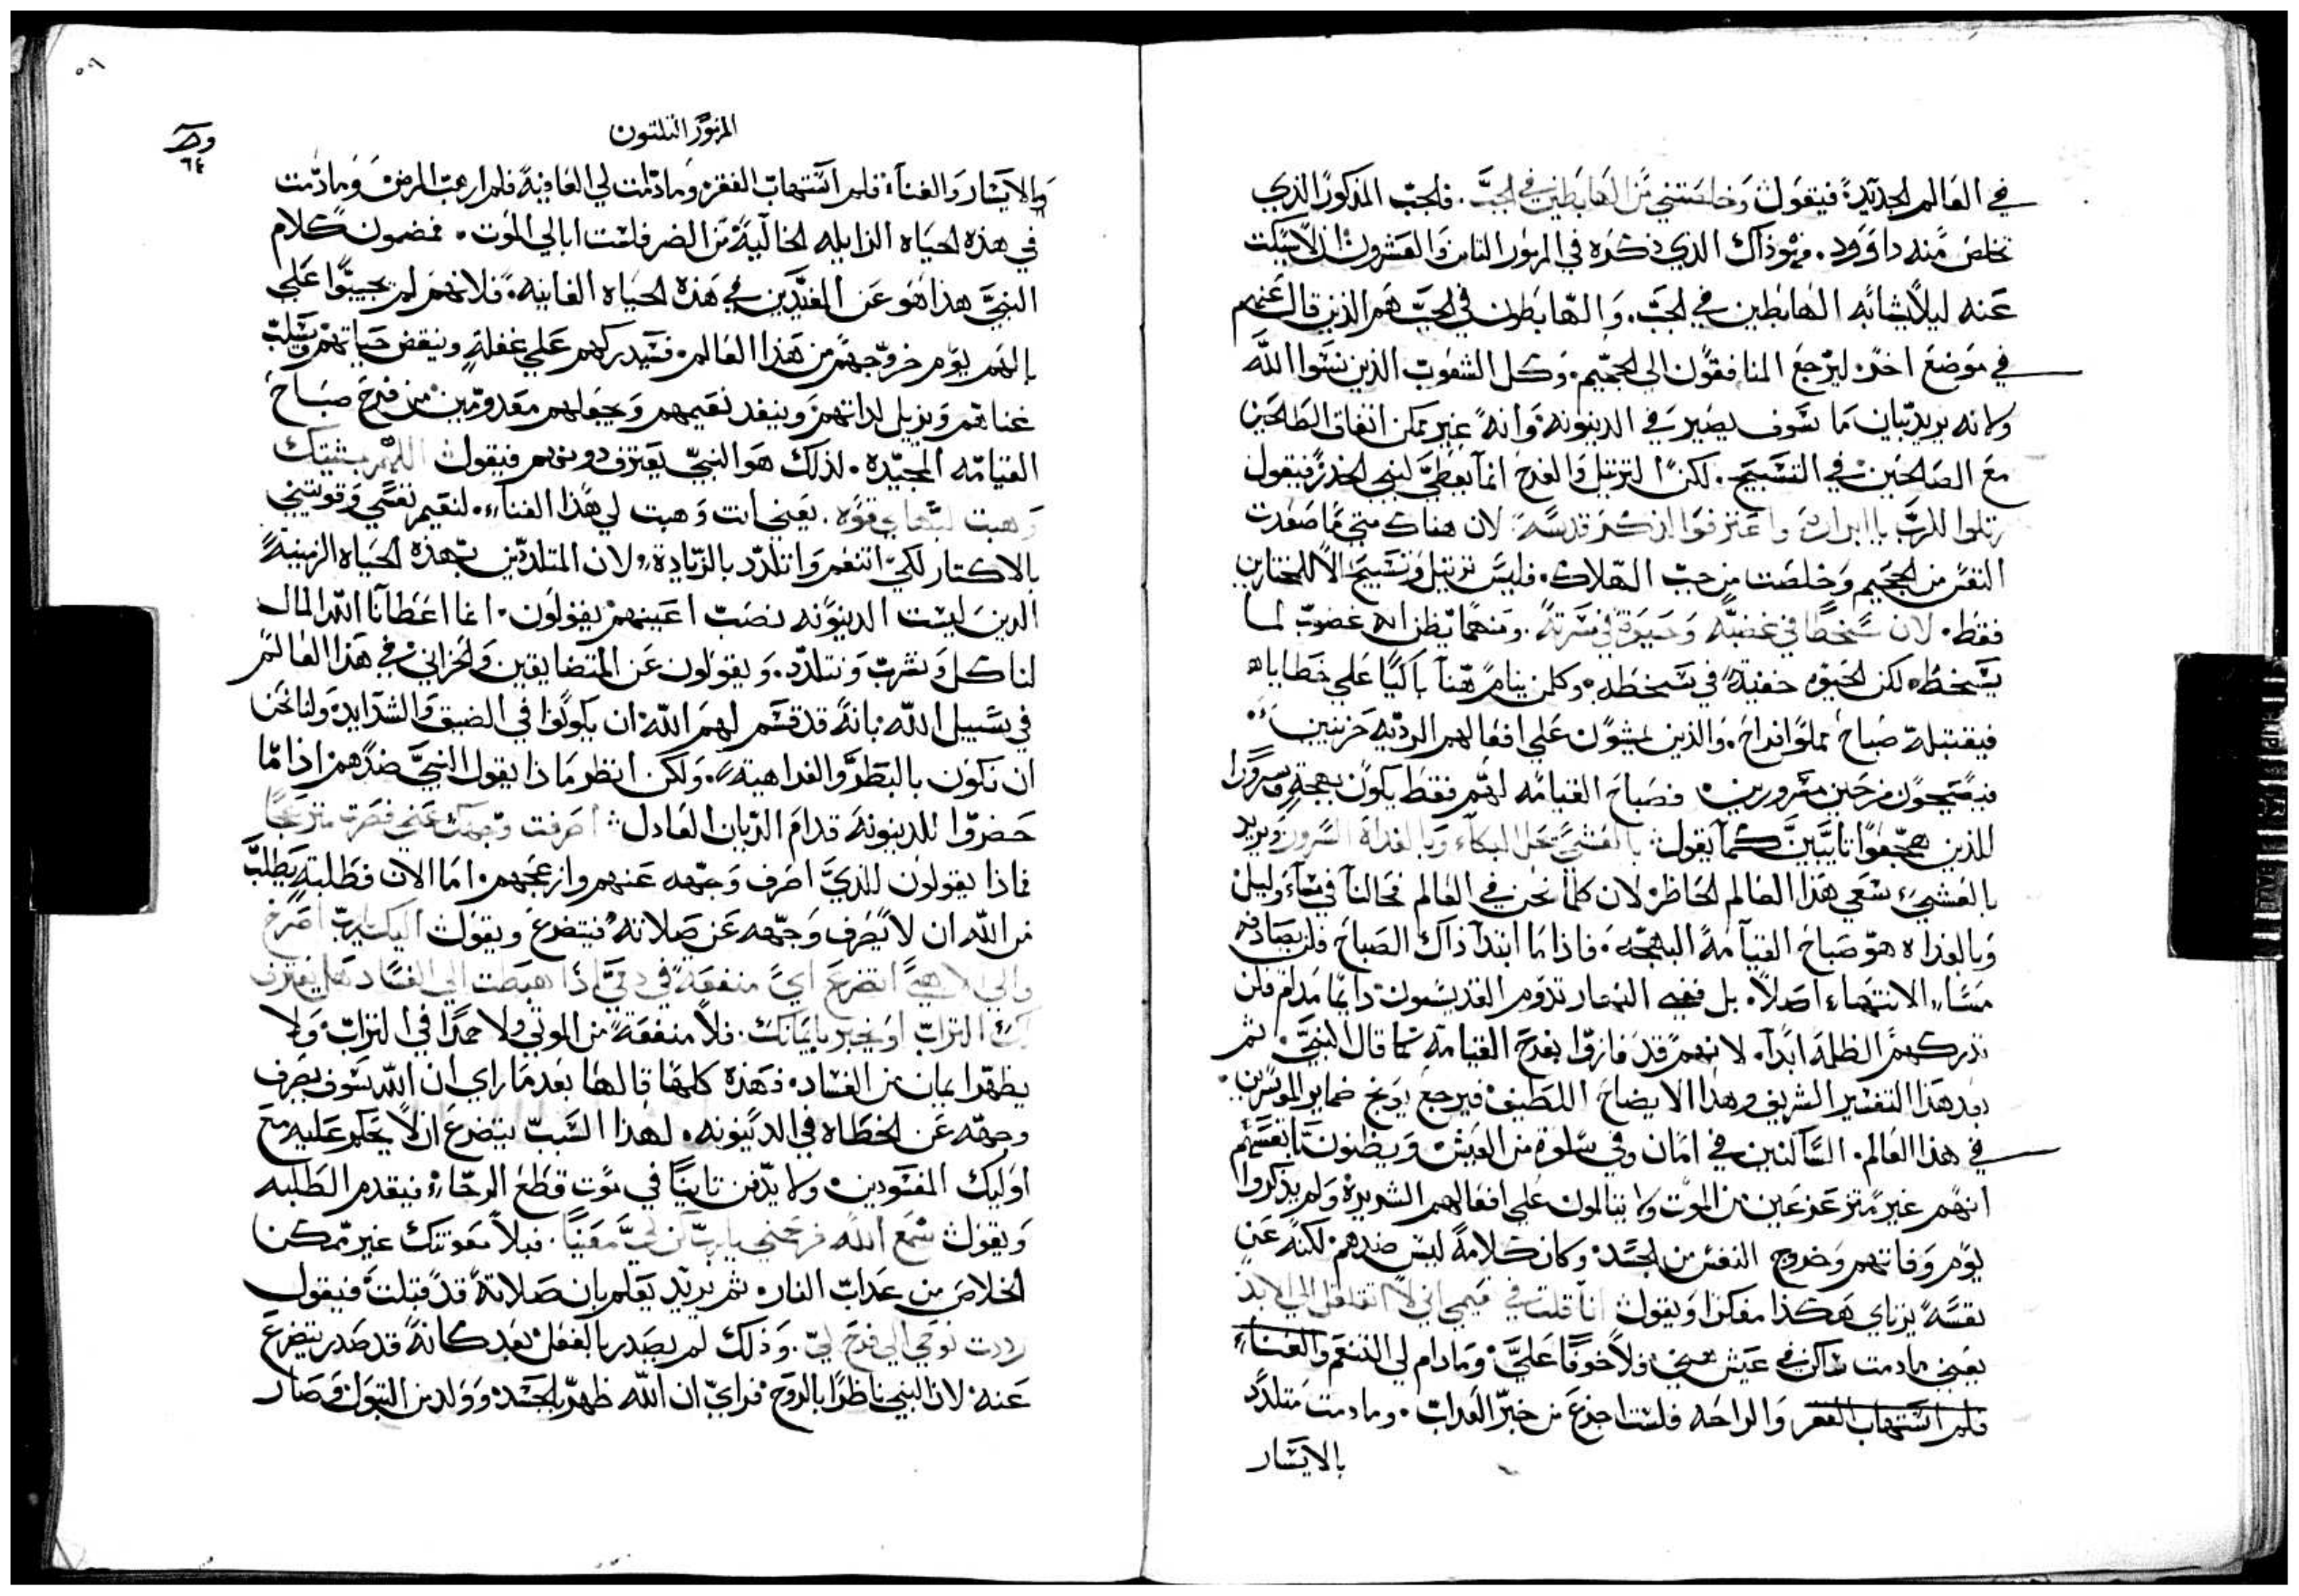 في العالم الجديد فيقول وخلصتني من الهابطين في الجب. فالجب المذكور الذي
تخلص منه داوود. هو ذاك الذي ذكره في المزمور الثامن والعشرون ان لا يسكت
عنه ليلا يشابه الهابطين في الجب. والهابطون في الجب هم الذين قال عنهم
في موضع اخر ليرجع المنافقون الى الجحيم. وكل الشعوب الذين نسوا الله
ولانه يريد بيان ما سوف يصير في الدينونه وانه غير ممكن اتفاق الطالحين
مع الصالحين في التسبيح. لكن الترتيل والفرح انما يعطي لبني الخدر فيقول
رتلوا للرب يا ابراره واعترفوا لذكر قدسه. لان هناك متي ما صعدت
النفس من الجحيم وخلصت من جب الهلاك. فليس ترتيل وتسبيح الا للمختارين
فقط. لان سخطا في غضبه وحيوة في مسرته. ومهما يظن انه غضوب لما
يسخط. لكن الحيوه خفية في سخطه. وكلمن ينام هنا باكيا علي خطاياه
فيقتبله صباح مملو افراح. والذين يمشون على افعالهم الرديه حزينين
فيصبحون فرحين مسرورين. فصباح القيامه لهم فقط يكون بهجة وسرورا
للذين هجعوا تايبين كما يقول بالعشي يحل البكاء وبالغداة السرور ويريد
بالعشي سعي هذا العالم الحاظر لان كلما نحن في العالم فحالنا في مساء وليل
وبالغداه هو صباح القيآمة البهجه. فاذا ما ابتدا ذاك الصباح فلن يصادفه
مساء الانتهاء اصلا. بل ففي النهار تدوم القديسون دايما مدام فلن
تدركهم الظلمة ابدآ. لانهم قد فازوا بفرح القيامة كما قال النبي. ثم
بعد هذا التفسير الشريف وهذا الايضاح اللطيف فيرجع يوبخ ضماير الموسرين.
في هذا العالم. الساكنين في امان وفي سلوة من العيش ويظنون بانفسهم
انهم غير متزعزعين من الموت ولا يتالمون علي افعالهم الشريرة ولم يذكروا
يوم وفاتهم وخروج النفس من الجسد وكان كلامه ليس ضدهم لكنه عن
نفسه يرتاي هكذا مفكرا ويقول انا قلت في نعيمي اني لا اتقلقل الي الابد
يعني مادمت ساكن في عيش هني فلا خوفا علي. ومادام لي التنعم والغناء
فلم اشتهاب الفقر والراحه فلست اجزع من خبر العذاب. ومادمت متلذد
بالايسار
المزمور الثلثون
٦٤
والايسار والغنآء فلم اشتهاب الفقر ومادامت لي العافية فلم ارهب المرض ومادمت
في هذه الحياه الزايله الخالية من الضر فلست ابالي الموت. فمضمون كلام
النبي هذا هو عن المقيدين في هذه الحياه الفانيه. فلانهم لم يحسبوا على
بالهم يوم خروجهم من هذا العالم. فسيدركهم علي غفلة وينقض حياتهم ويسلب
غناهم ويزيل لذاتهم وينفد نعيمهم ويجعلهم معدومين من فرح صباح
القيامه المجيده. لذلك هو النبي يعترف دونهم فيقول اللهم بمشيتك
وهبت لبهاي قوه. يعني انت وهبت لي هذا الغناء. لنعيم تنعمي وقويتني
بالاكتار لكي اتنعم واتلذد بالزيادة. ولان المتلددين بهذه الحياه الزمنية
الذين ليست الدينونه نصب اعينهم يقولون. انما اعطانا الله المال
لناكل ونشرب ونتلدد. ويقولون عن المتضايقين والحزاني في هذا العالم
في سبيل الله بانه قد قسم لهم الله ان يكونوا في الضيق والشدايد ولنا نحن
ان نكون بالبطر والفراهية. ولكن انظر ماذا يقول النبي ضدهم اذا ما
حضروا للدينونة قدام الديان العادل اصرفت وجهك عني فصرت منزعجا
فماذا يقولون للذي اصرف وجهه عنهم وازعجهم. اما الان فطلبته يطلب
من الله ان لا يصرف وجهه عن صلاته فيتضرع ويقول اليك يارب اصرخ
والي الاهي اتضرع اي منفعة في دمي اذا هبطت الي الفساد هل يعترف
لك التراب او يخبر بايمانك. فلا منفعة من الموتي ولا حمدا في التراب ولا
يظهر ايمان من الفساد. فهذه كلمها قالها بعد ما راي ان الله سوف يصرف
وجهه عن الخطاه في الدينونه. لهذا السبب يتضرع ان لا يحكم عليه مع
اوليك المفسودين. ولا يدفن تايبا في موت قطع الرجاء فيقدم الطلبه
ويقول سمع الله فرحمني يارب كن لي معينا. فبلا معونتك غير ممكن
الخلاص من عذاب النار. ثم يريد يعلم بان صلاته قد قبلت فيقول
رددت نوحي الي فرح لي. وذلك لم يصدر بالفعل بعد كانه قد صدر يتضرع
عنه. لان النبي ناظرا بالروح فراي ان الله ظهر بالجسد وولد من البتول وصار